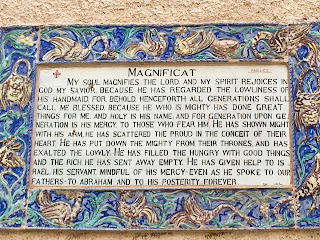 MAGNIFICAT
MY SOUL MAGNIFIES THE LORD, AND MY SPIRIT REJOICES IN
GOD MY SAVIOR, BECAUSE HE HAS REGARDED THE LOWLINESS OF
HIS HANDMAID FOR BEHOLD, HENCEFORTH ALL GENERATIONS SHALL
CALL ME BLESSED, BECAUSE HE WHO IS MIGHTY HAS DONE GREAT
THINGS FOR ME AND HOLY IS HIS NAME, AND FOR GENERATION UPON GE
NERATION IS HIS MERCY TO THOSE WHO FEAR HIM. HE HAS SHOWN MIGHT
WITH HIS ARM, HE HAS SCATTERED THE PROUD IN THE CONCEIT OF THEIR
HEART. HE HAS PUT DOWN THE MIGHTY FROM THEIR THRONES, AND HAS
EXALTED THE LOWLY. HE HAS FILLED THE HUNGRY WITH GOOD THINGS
AND THE RICH HE HAS SENT AWAY EMPTY. HE HAS GIVEN HELP TO IS
RAEL, HIS SERVANT MINDFUL OF HIS MERCY-EVEN AS HE SPOKE TO OUR
FATHERS-TO ABRAHAM AND TO HIS POSTERITY FOREVER